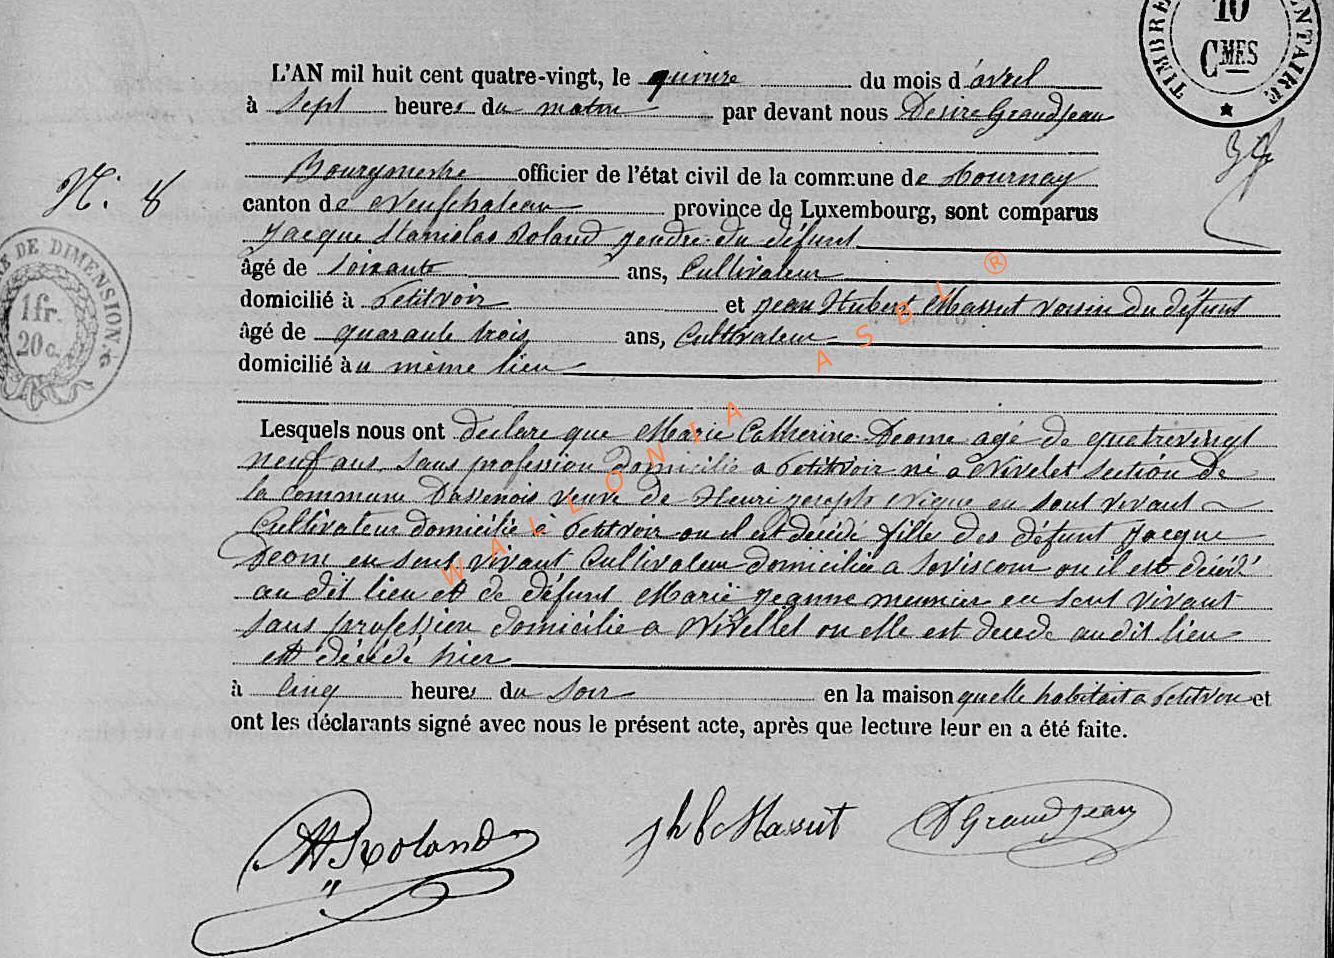 TIMBRE
10
CMES
L'AN mil huit cent quatre-vingt, le quinze du mois d'avril
à sept heures du matin par devant nous Désiré Grandjean
Bourgmestre officier de l'état civil de la commune de Tournay
N. 8
canton de Neufchateau province de Luxembourg, sont comparus
Jacque Stanislas Roland gendre du défunt
âgé de soixante ans, Cultivateur
domicilié à Petitvoir et Jean Hubert Massut voisin du défunt
âgé de quarante trois ans, Cultivateur
domicilié au même lieu
DE DIMENSION
1fr.
20c.
Lesquels nous ont declare que Marie Catherine Deome agé de quatrevingt
neuf ans sans profession domicilié a Petitvoir né a Nivelet section de
la commune Dassenois veuve de Henri joseph en sont vivant
Cultivateur domicilié à Petitvoir ou il est décédé fille des défunt Jacque
Deom en sont vivant Cultivateur domicilié a ou il est décédé
au dit lieu et de défunt Marie Jeanne meunier en sont vivant
sans profession domicilié a Nivellet ou elle est decede audit lieu
est décédé hier
à cinq heures du soir en la maison quelle habitait a Petitvoir et
ont les déclarants signé avec nous le présent acte, après que lecture leur en a été faite.
Roland
jh h Massut
D Grandjean
WALLONIA ASBL ®